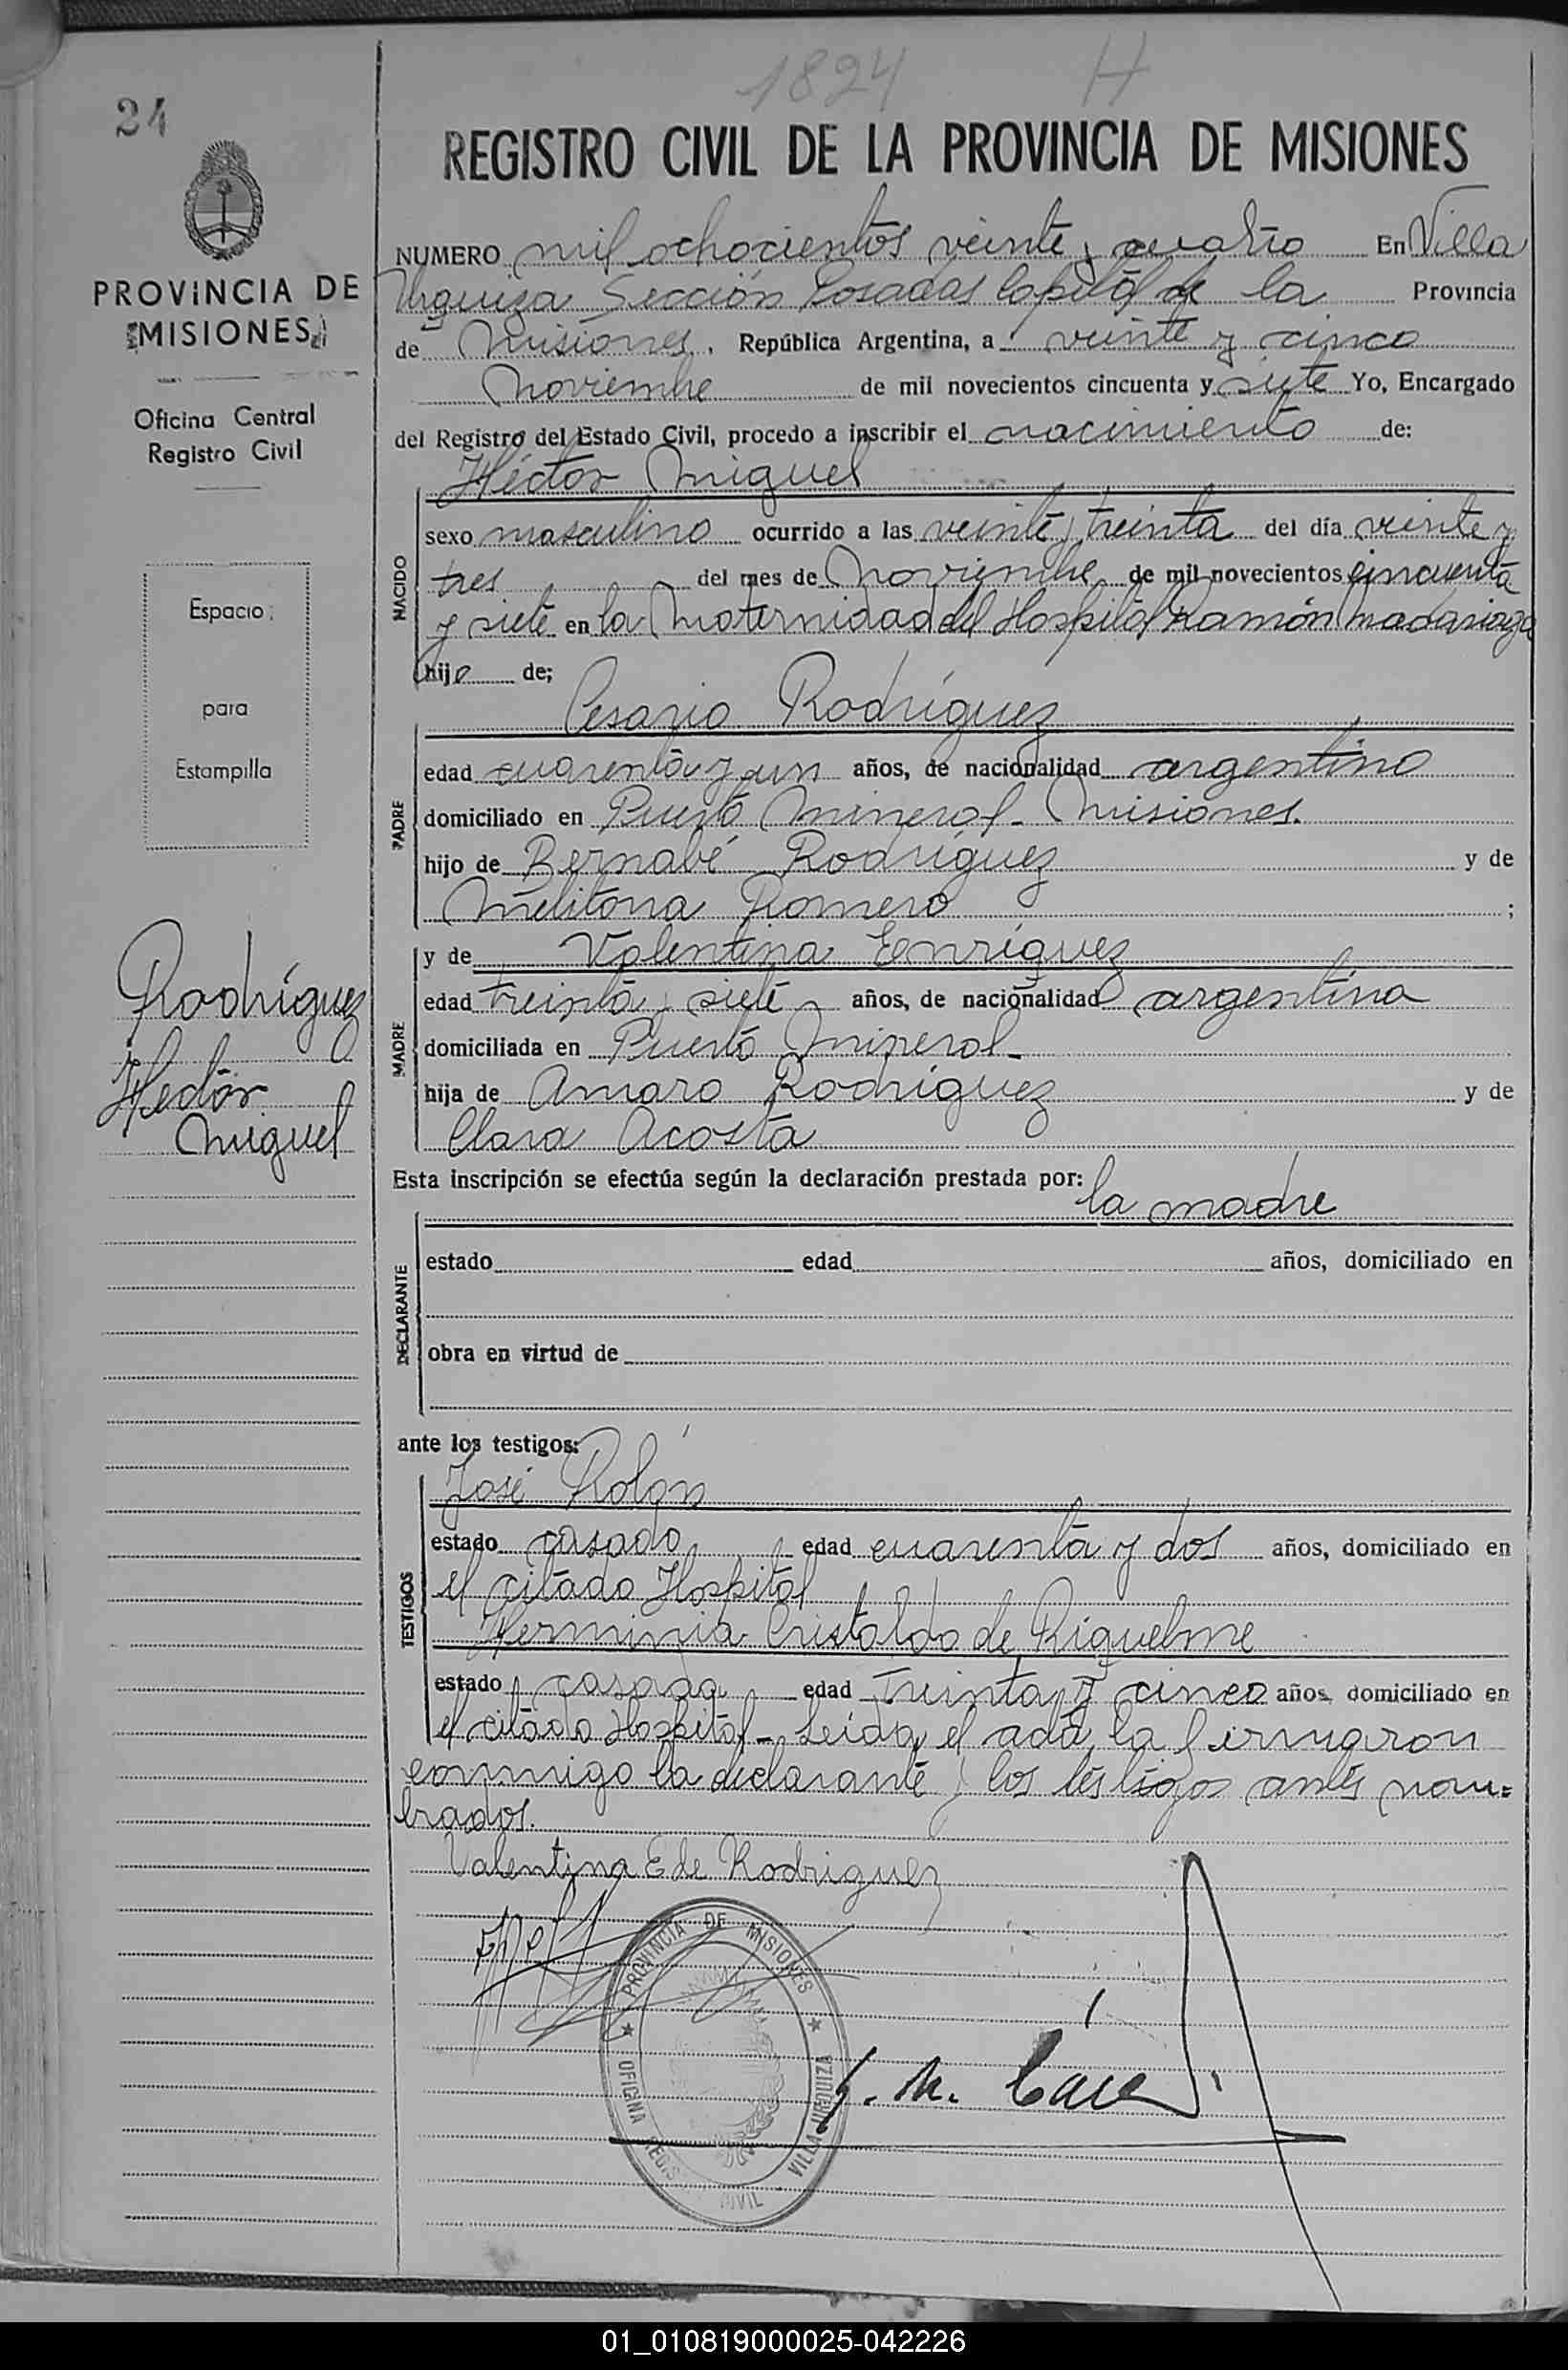 24
1824 H
REGISTRO CIVIL DE LA PROVINCIA DE MISIONES
PROVINCIA DE
MISIONES
Oficina Central
Registro Civil
Espacio
para
Estampilla
Rodríguez
Héctor
Miguel
NUMERO mil ochocientos veinte y cuatro En Villa
Urquiza Sección Posadas Capital de la Provincia
de Misiones, República Argentina, a veinte y cinco
Noviembre de mil novecientos cincuenta y siete Yo, Encargado
del Registro del Estado Civil, procedo a inscribir el nacimiento de:
Héctor Miguel
NACIDO
sexo masculino ocurrido a las veinte y treinta del día veinte y
tres del mes de Noviembre de mil novecientos cincuenta
y siete en la Maternidad del Hospital Ramón Madariaga
hijo de;
Cesario Rodríguez
PADRE
edad cuarenta y un años, de nacionalidad argentino
domiciliado en Puerto Mineral - Misiones.
hijo de Bernabé Rodríguez y de
Melitona Romero ;
y de Valentina Enríquez
MADRE
edad treinta y siete años, de nacionalidad argentina
domiciliada en Puerto Mineral -
hija de Amaro Rodríguez y de
Clara Acosta
Esta inscripción se efectúa según la declaración prestada por:
la madre
DECLARANTE
estado edad años, domiciliado en
obra en virtud de
ante los testigos:
José Rolón
TESTIGOS
estado casado edad cuarenta y dos años, domiciliado en
el citado Hospital
Herminia Cristaldo de Riquelme
estado casada edad Treinta y cinco años, domiciliado en
el citado Hospital - Leída el acta, la firmaron
conmigo la declarante y los testigos antes nom=
brados.
Valentina E de Rodriguez
PROVINCIA DE MISIONES
OFICINA REGIS CIVIL VILLA URQUIZA
01_010819000025-042226